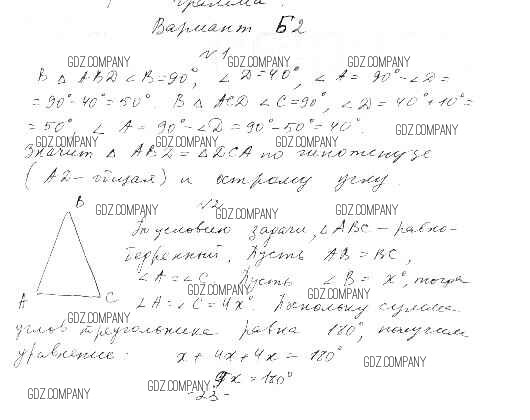 Вариант Б2
№1
GDZ.COMPANY GDZ.COMPANY GDZ.COMPANY
В △ ABD ∠B=90°, ∠D=40°, ∠A= 90°-∠D=
=90°-40°=50°. В △ ACD ∠C=90°, ∠D= 40°+10°=
=50°, ∠A=90°-∠D=90°-50°=40°. GDZ.COMPANY
GDZ.COMPANY GDZ.COMPANY GDZ.COMPANY
Значит △ABD=△DCA по гипотенузе
(AD-общая) и острому углу.
№2
B GDZ.COMPANY GDZ.COMPANY GDZ.COMPANY
По условию задачи, ∠ABC-равно-
бедренный. Пусть AB=BC,
GDZ.COMPANY GDZ.COMPANY
∠A=∠C Пусть ∠B= x°, тогда
A C ∠A=∠C=4x°. Поскольку сумма
GDZ.COMPANY GDZ.COMPANY GDZ.COMPANY
углов треугольника равна 180°, получим
уравнение: x+4x+4x=180°
GDZ.COMPANY
9x=180°
GDZ.COMPANY GDZ.COMPANY
-23-